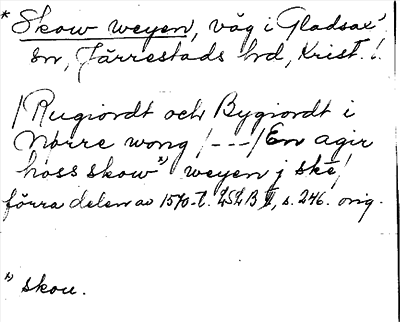 * Skow weyen, väg i Gladsax'
sn, Järrestads hd, Krist. l.
/Rugiordt och Bygiordt i
Nörre wong /---/ En agir
hoss skow ⁾ weyen j ske/
förra delen av 1570-t. LSLB II, s. 246. orig.
⁾ skou.